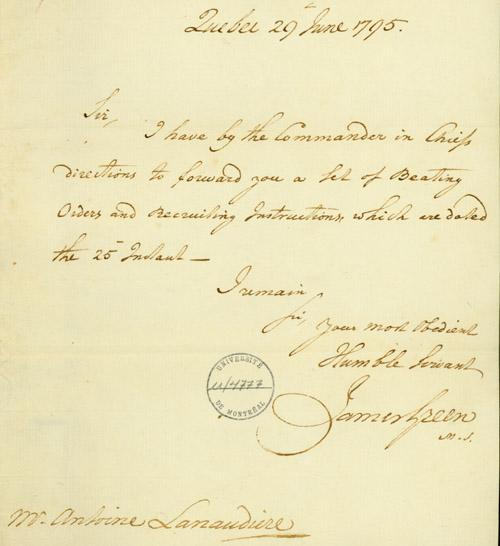 Quebec 29th June 1795.
Sir,
I have by the Commander in Chiefs
directions to forward you a Set of Beating
Orders and Recruiting Instructions, which are dated
the 25th Instant —
I remain
Sir,
Your most Obedient
Humble Servant
James Green
M. S.
UNIVERSITÉ
U/4777
DE MONTRÉAL
Mr. Antoine Lanaudiere